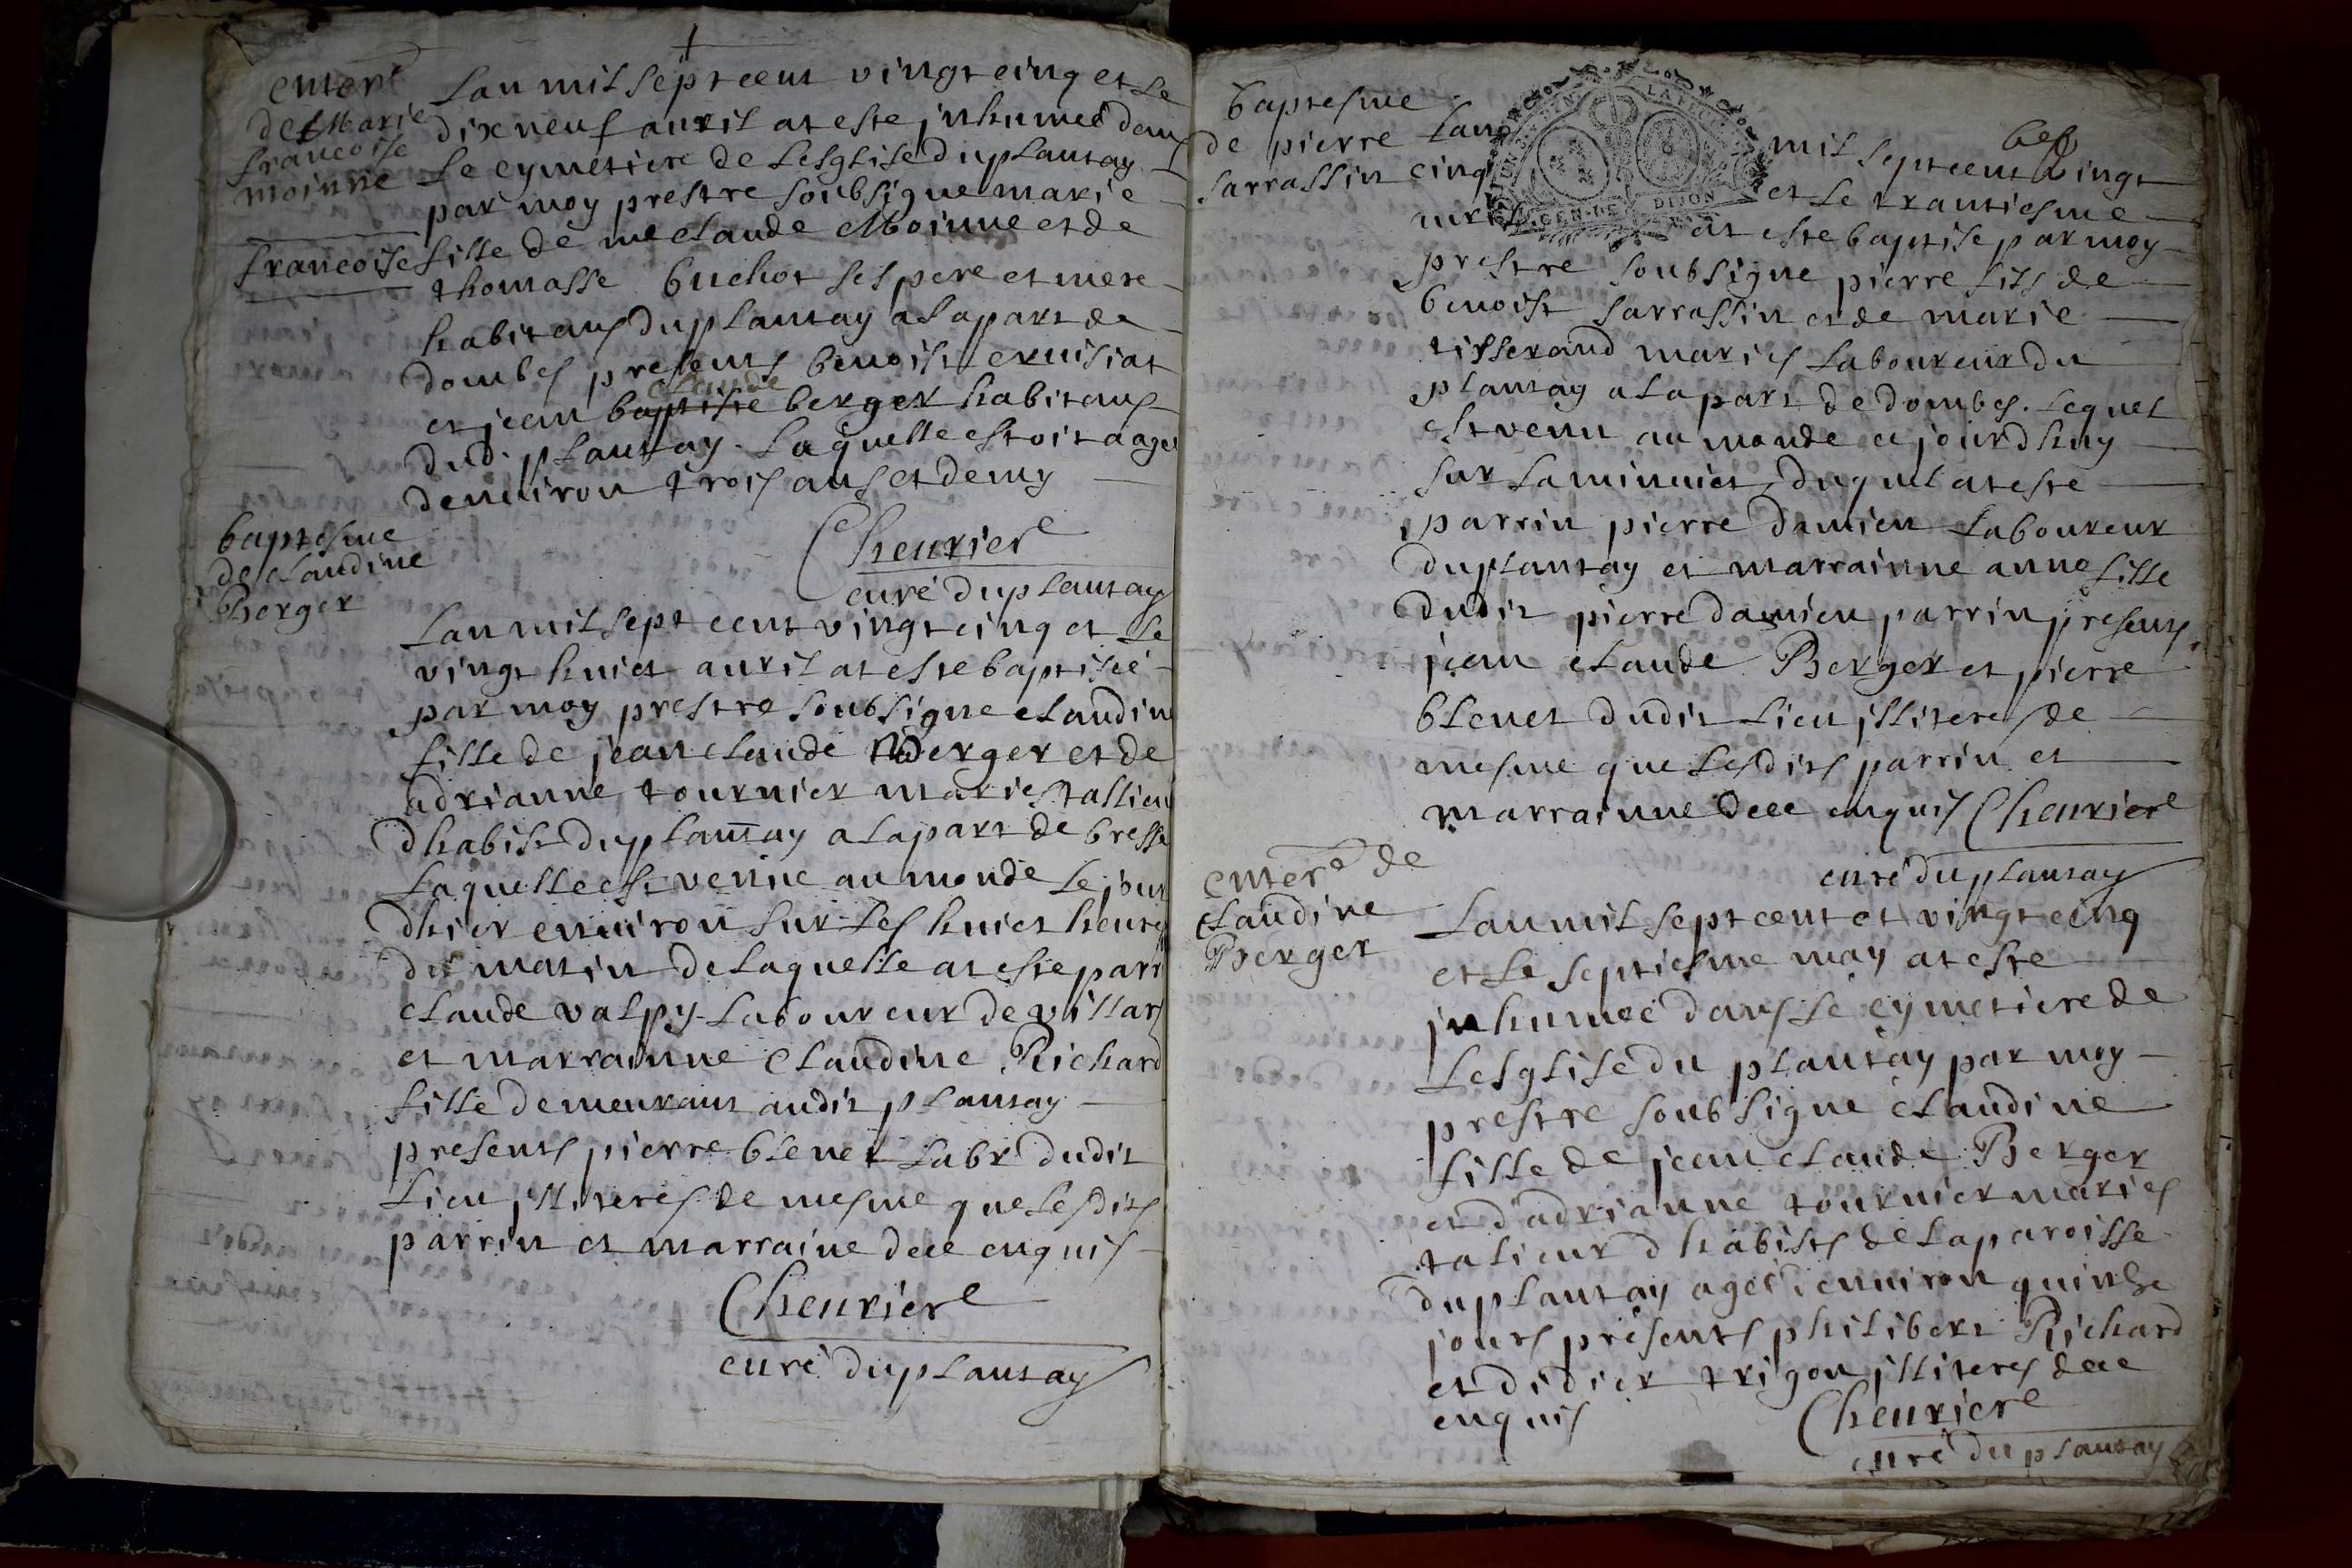 enterre
de Marie
francoise
moinne
francoise
Lan mil sept cent vingt cinq et le
dixneuf avril at este jnhumeé dans
Le cymetiere de Lesglise du plantay
par moy prestre soubsigne marie
fille de me claude Moinne et de
thomasse buchot ses pere et mere
habitans du plantay a la part de
dombes presents benoist cruisiat
claude
et jean baptiste berger habitans
dud. plantay. Laquelle estoit aageé
denuiron trois ans et demy
Cheuriere
curé du plantay
baptesme
de claudine
Berger
Lan mil sept cent vingt cinq et le
vingt huict auril at este baptiseé
par moy prestre soubsigne claudine
fille de jean claude Berger et de
adrianne tournier maries tallieur
dhabist du plantay a la part de bresse
Laquelle est venue au monde le jour
dhier enuiron sur les huict heures
du matin de laquelle at este parrin
claude valpy laboureur de villars
et marrainne Claudine Richard
fille demeurant audit plantay
presents pierre blenet labr dudit
Lieu jlliteres de mesme que lesdits
parrin et marraine dece enquis
Cheuriere
curé du plantay
baptesme
de pierre
sarrassin
Lan mil sept cent vingt
cinq et le trantiesme
auril at este baptise par moy
prestre soubsigne pierre fils de
benoist sarrassin et de marie
tisserand maries laboureur du
plantay a la part de dombes. Lequel
est venu au monde ce jourdhuy
sur la minuict, duquel at este
parrin pierre damien laboureur
du plantay et marrainne anne fille
dudit pierre damien parrin presents
jean claude Berger et pierre
blenet dudit lieu jlliteres de
mesme que lesdits parrin et
marrainne dece enquis Cheuriere
curé du plantay
enterre de
claudine
Berger
Lan mil sept cent et vingt cinq
et le septiesme may at este
jnhumeé dans le cymetiere de
Lesglise du plantay par moy
prestre soubsigne claudine
fille de jean claude Berger
et d'adrianne tournier maries
talieur dhabists de la paroisse
du plantay ageé denuiron quinze
jours presents philibert Richard
et didier trigon jlliteres dece
enquis
Cheuriere
curé du plantay